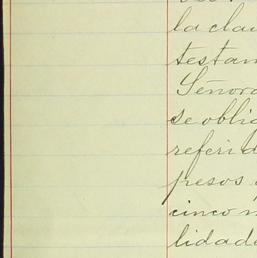 la clau
testam
Señora
se oblig
referid
pesos
cinco m
lidade